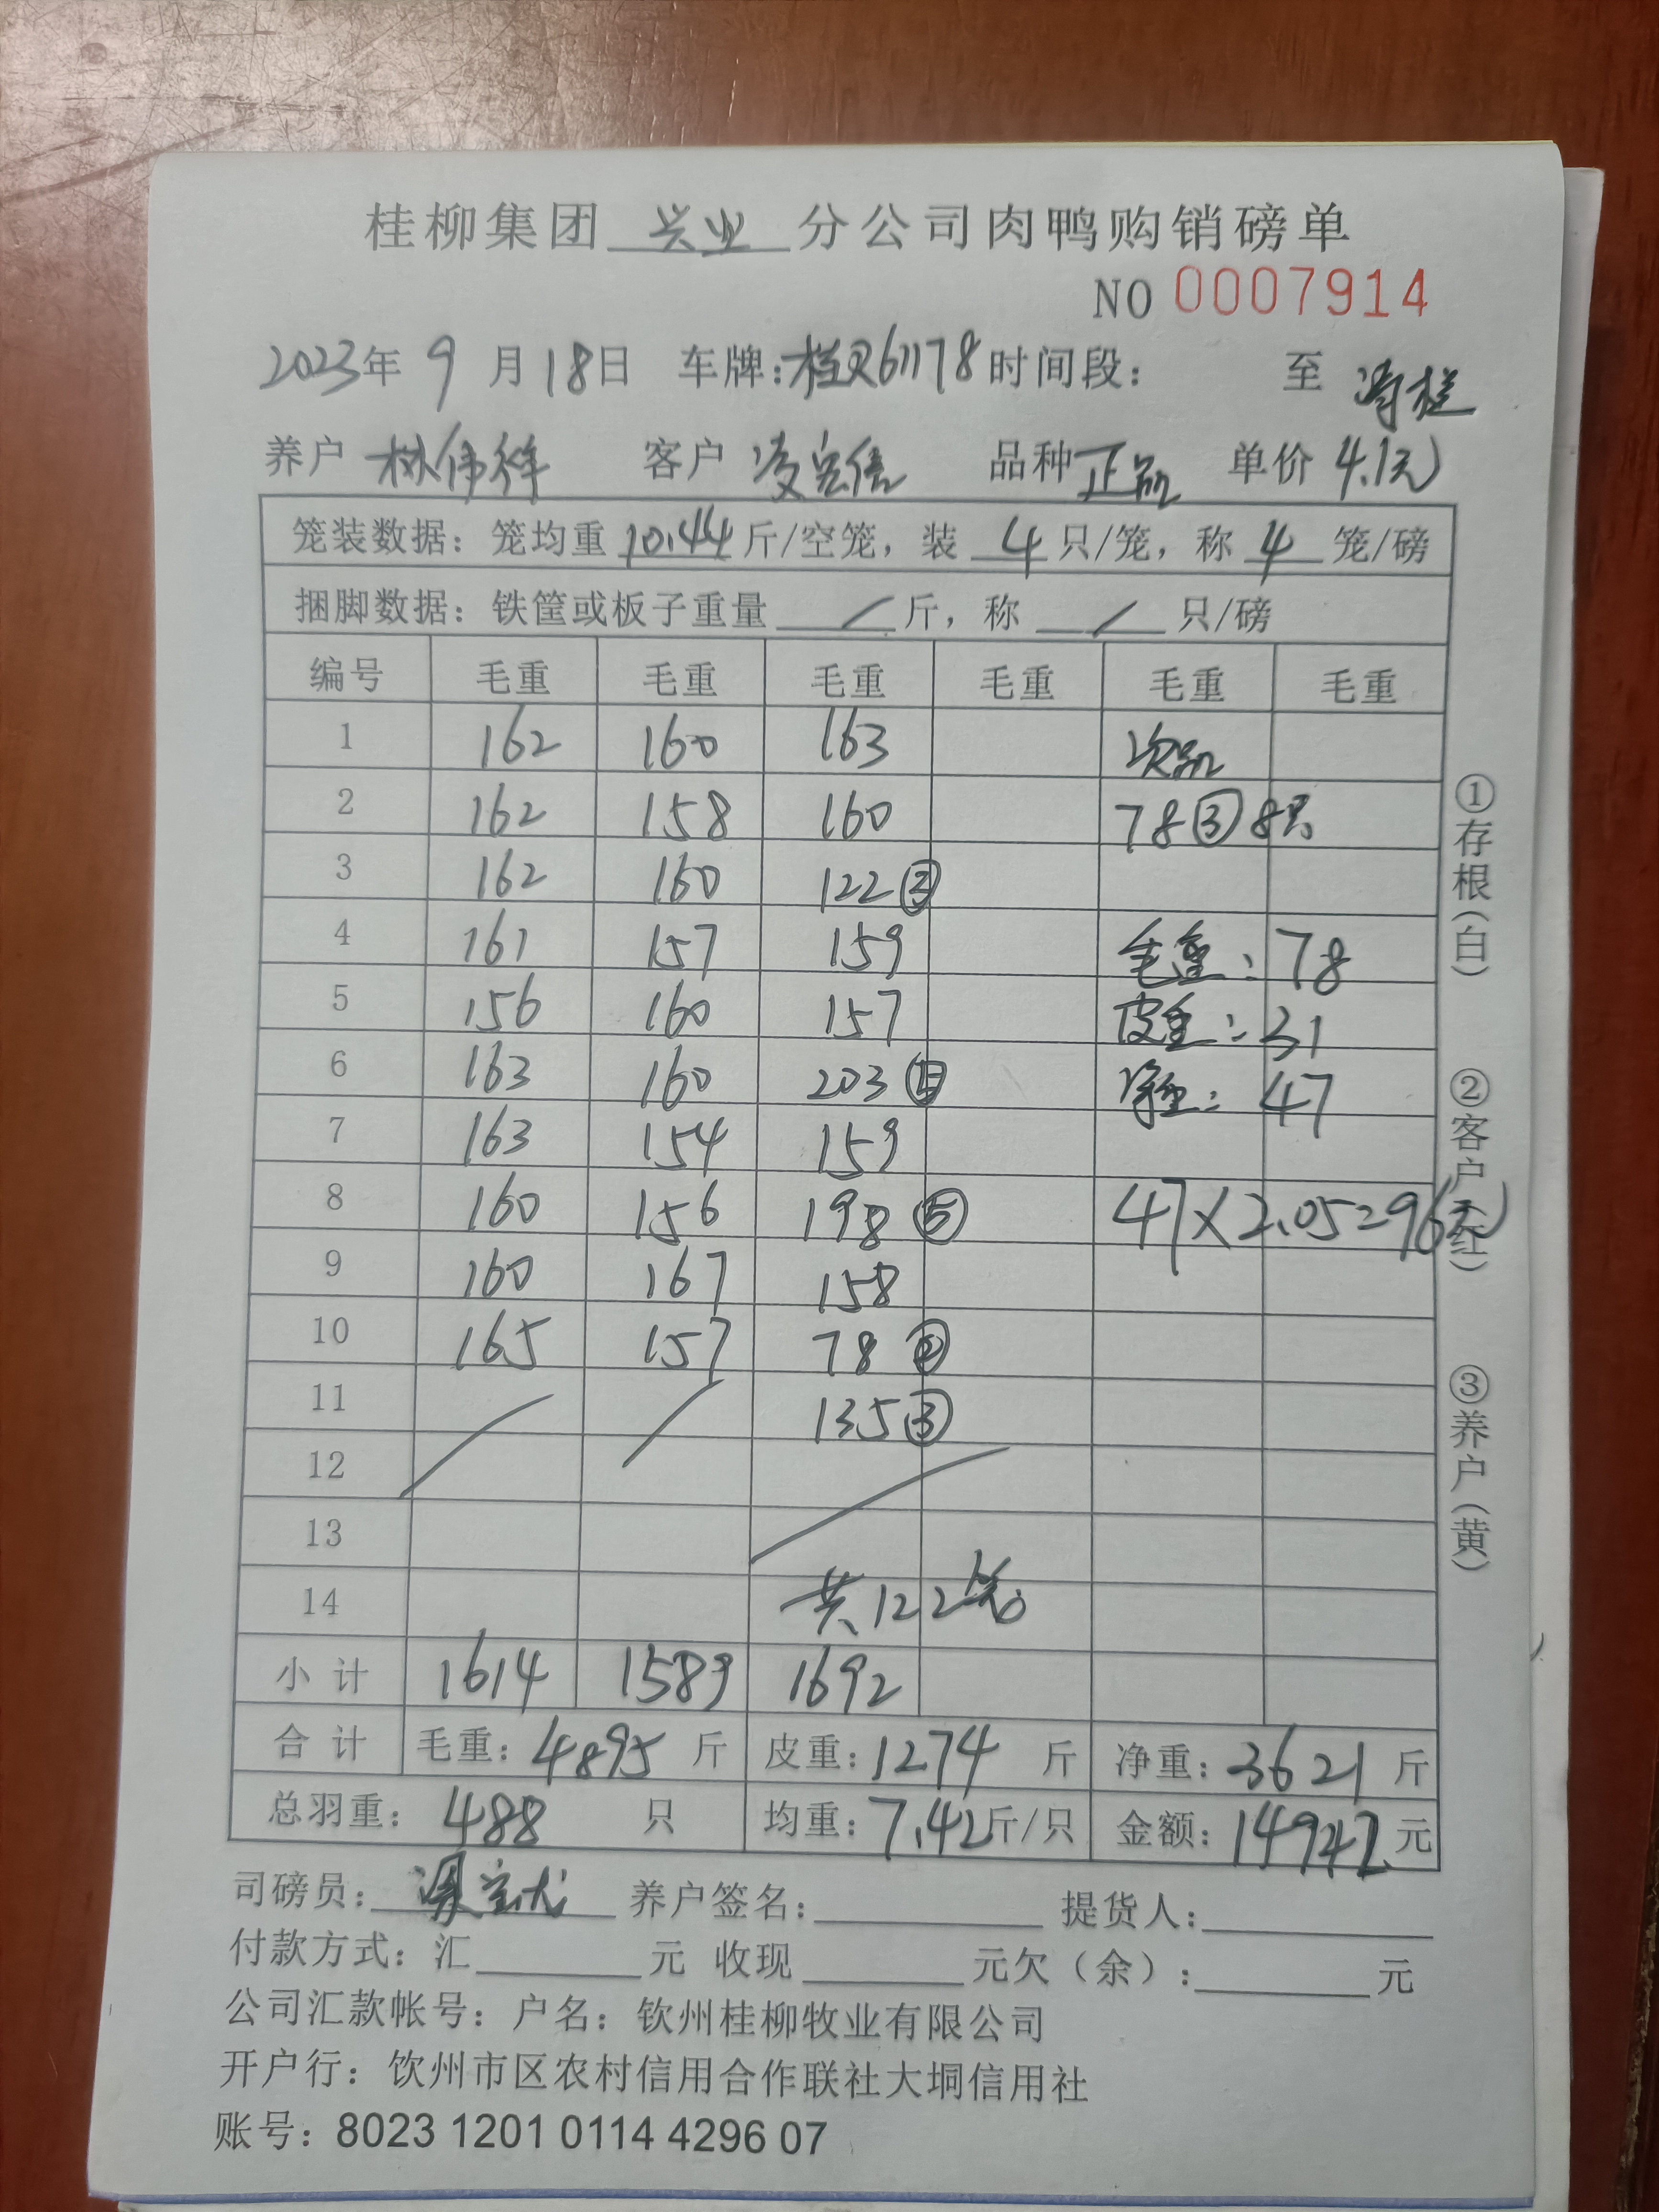 桂柳集团 兴业 分公司肉鸭购销磅单
NO 0007914
2023年 9 月 18日 车牌：桂R61178 时间段： 至
养户 林伟祥 客户 凌宗信 品种 正品 单价 4.1元
笼装数据：笼均重 10.44 斤/空笼，装 4 只/笼，称 4 笼/磅
捆脚数据：铁筐或板子重量 / 斤，称 / 只/磅
编号 毛重 毛重 毛重 毛重 毛重 毛重
1 162 160 163 次品
2 162 158 160 78③ 8只
3 162 160 122③
4 161 157 159 毛重：78
5 156 160 157 皮重：31
6 163 160 203 净重：47
7 163 154 159
8 160 156 198⑤ 47×2.05=96元
9 160 167 158
10 165 157 78②
11 135③
12
13
14 共122笼
小计 1614 1589 1692
合计 毛重：4895 斤 皮重：1274 斤 净重：3621 斤
总羽重：488 只 均重：7.42斤/只 金额：14942元
司磅员： 养户签名： 提货人：
付款方式：汇 元 收现 元欠（余）： 元
公司汇款帐号：户名：钦州桂柳牧业有限公司
开户行：饮州市区农村信用合作联社大垌信用社
账号：8023 1201 0114 4296 07
①存根（白）
②客户（红）
③养户（黄）